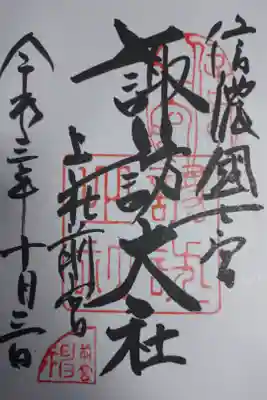 信濃國一宮
諏訪大社
上社前宮
令和三年十月三日